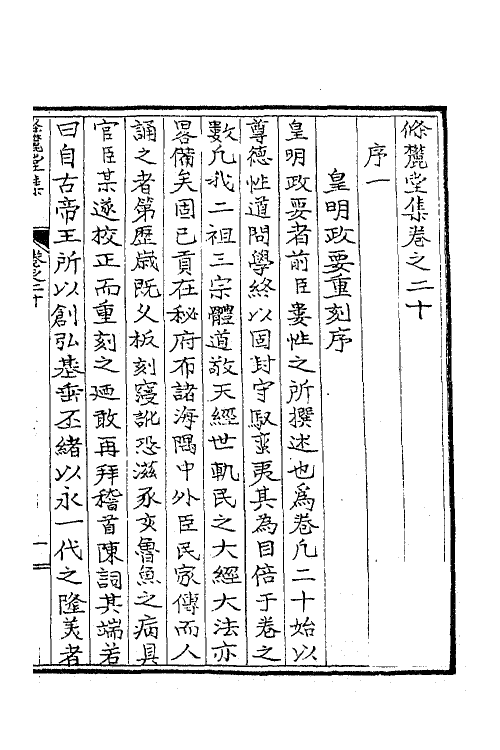 條麓堂集卷之二十
序一
皇明政要重刻序
皇明政要者前臣婁性之所撰述也爲卷凡二十始以
尊德性道問學終以固封守馭蠻夷其為目倍于卷之
數凡我二祖三宗體道敬天經世軌民之大經大法亦
畧備矣固已貢在秘府布諸海隅中外臣民家傳而人
誦之者第歷歲既久板刻寖訛恐滋豕亥魯魚之病具
官臣某遂校正而重刻之廼敢再拜稽首陳詞其端若
曰自古帝王所以創弘基垂丕緒以永一代之隆美者
條麓堂集
卷之二十
一